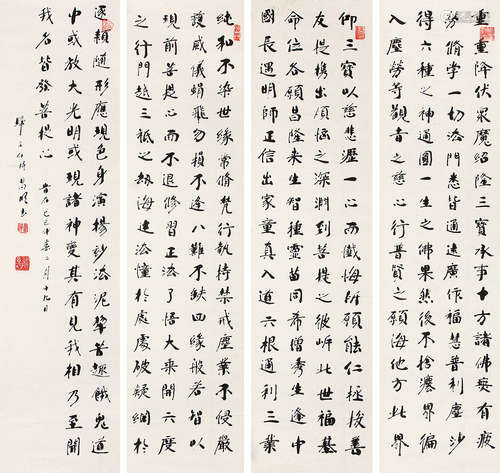 重重降伏眾魔紹隆承事十方諸佛無有疲
勞脩學一切法門悉皆通達廣作福慧普利塵沙
得六種之神通圓一生之佛果然後不捨法界徧
入塵勞等觀音之慈心行普賢之願海他方此界
仰三寶以慈悲瀝一心而懺悔所願能仁拯拔善
友提携出煩惱之深淵到菩提之彼岸此世福基
命位各願昌隆來生智種靈苗同希增秀生逢中
國長遇明師正信出家童真入道六根通利三業
純和不染世緣常脩梵行執持禁戒塵業不侵嚴
護威儀蜎飛勿損不逢八難不缺四緣般若智以
現前菩提心而不退修習正法了悟大乘開六度
之行門越三祇之劫海建法幢於處處破疑網於
逐類隨形應現色身演揚妙法泥犂苦趣餓鬼道
中或放大光明或現諸神變其有見我相乃至聞
我名皆發菩提心 己巳仲春二月十九日